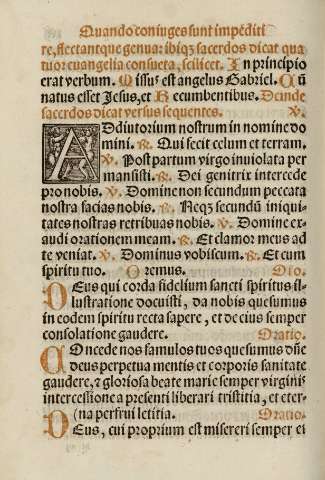 Quando coniuges sunt impediti
re, flectantque genua: ibiqʒ sacerdos dicat qua
tuor euangelia consueta, scilicet. In principio
erat verbum. Missus est angelus Gabriel. Cũ
natus esset Jesus, et Recumbentibus. Deinde
sacerdos dicat versus sequentes. ℣.
ADdiutorium nostrum in nomine do
mini. ℟. Qui fecit celum et terram.
℣. Post partum virgo inuiolata per
mansisti. ℟. Dei genitrix intercede
pro nobis. ℣. Domine non secundum peccata
nostra facias nobis. ℟. Neqʒ secundũ iniqui
tates nostras retribuas nobis. ℣. Domine ex-
audi orationem meam. ℟. Et clamor meus ad
te veniat. ℣. Dominus vobiscum. ℟. Et cum
spiritu tuo. Oremus. Oro.
DEus qui corda fidelium sancti spiritus il-
lustratione docuisti, da nobis quesumus
in eodem spiritu recta sapere, et de eius semper
consolatione gaudere. Oratio.
COncede nos famulos tuos quesumus dñe
deus perpetua mentis et corporis sanitate
gaudere, ⁊ gloriosa beate marie semper virginis
intercessione a presenti liberari tristitia, et eter-
(na perfrui letitia. Oratio.
DEus, cui proprium est misereri semper et